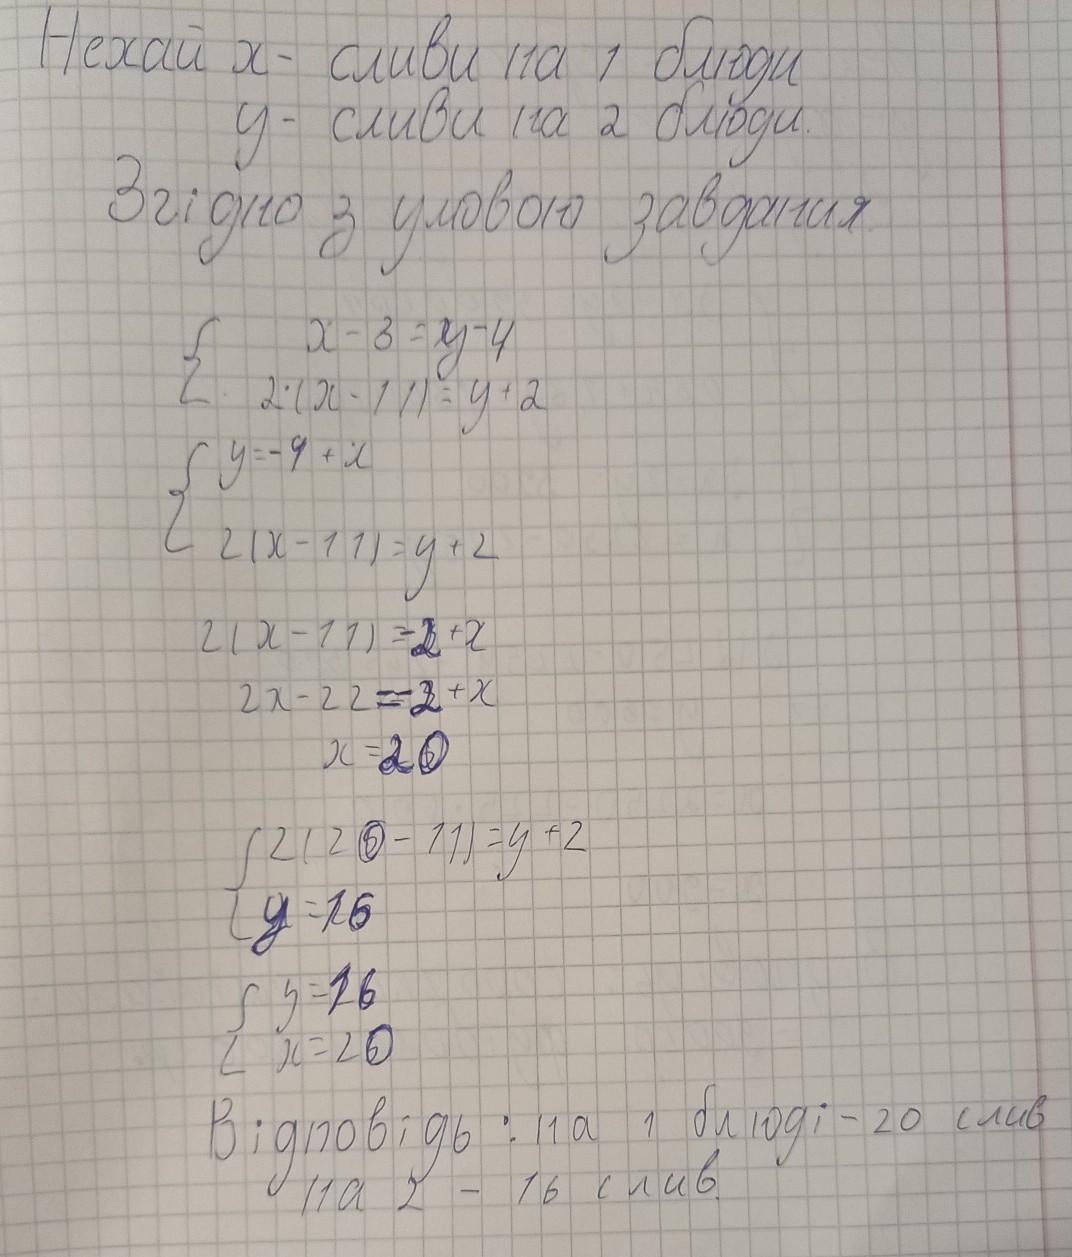 Нехай х- сливи на 1 блюди
у- сливи на 2 блюди.
Згідно з умовою завдання
x - 3 = y - 4
2·(x - 11) = y + 2
y = -4 + x
2(x - 11) = y + 2
2(x - 11) = -2 + x
2x - 22 = -2 + x
x = 20
2(20 - 11) = y + 2
y = 16
y = 16
x = 20
Відповідь: на 1 блюді - 20 слив
на 2 - 16 слив.